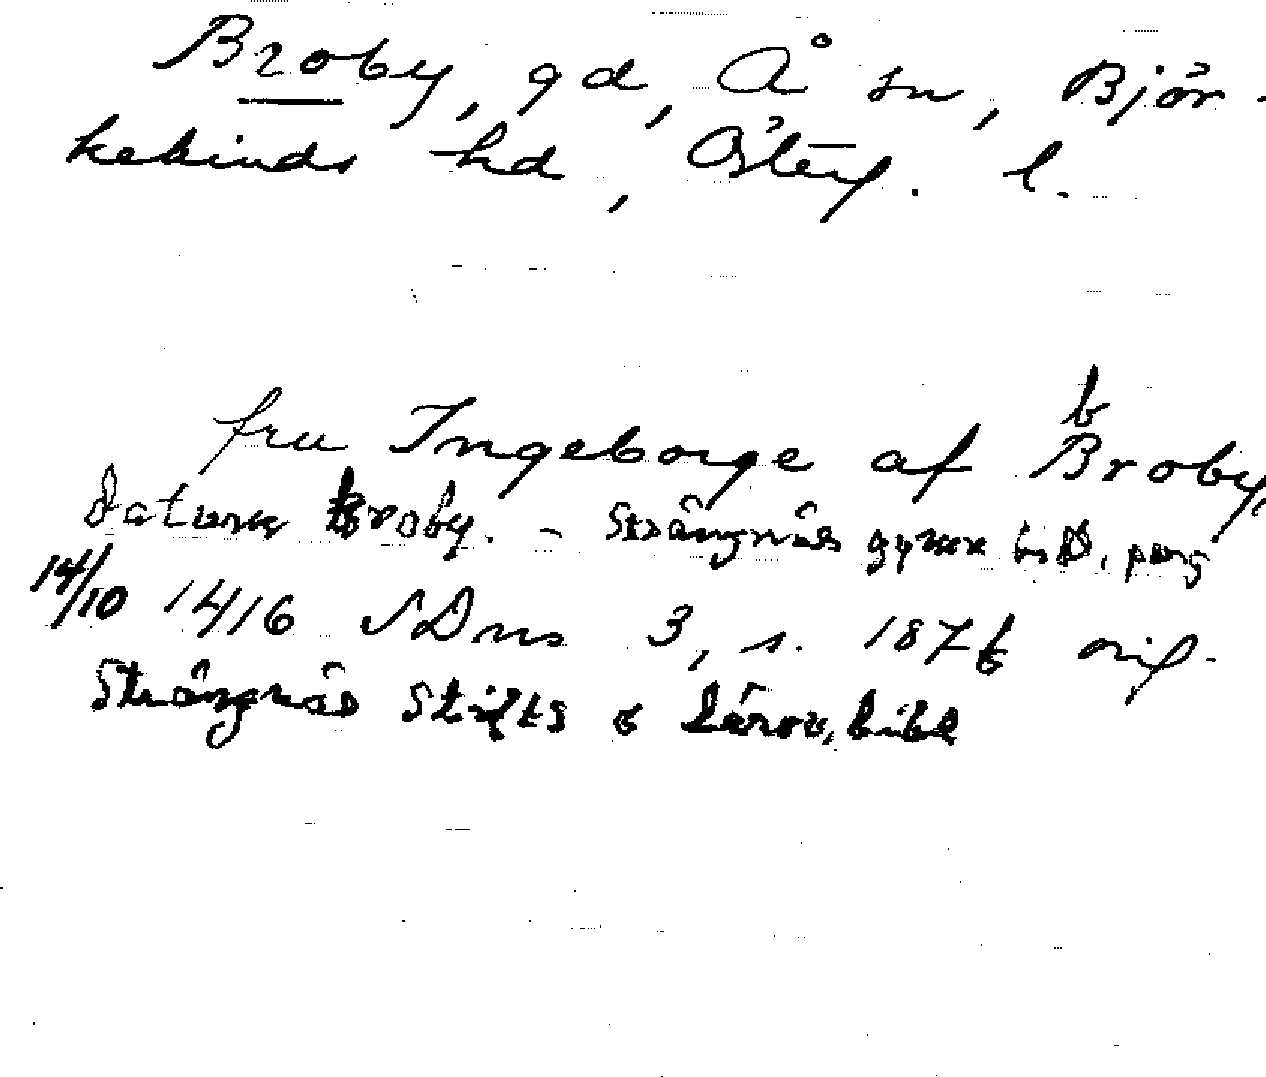 Broby, gd, Å sn, Björ-
kekinds hd, Österg. l.
fru Ingeborge af Broby, b
datum Broby. - Strängnäs gymn bibl, perg
14/10 1416 SDns 3, s. 187 orig.
Strängnäs Stifts o Lärov, bibl